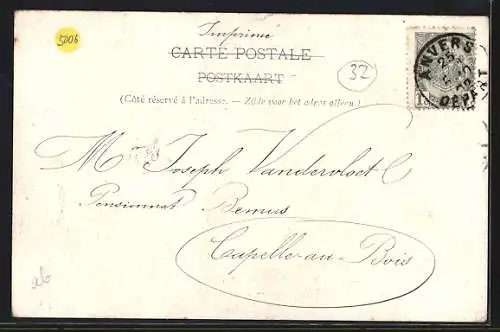 5006
Imprimé
CARTE POSTALE
POSTKAART
32
(Côté réservé à l'adresse. — Zijde voor het adres alleen.)
ANVERS
DEPART
Mr Joseph Vandervloet
Pensionnat Bemus
Capelle-au-Bois
ab